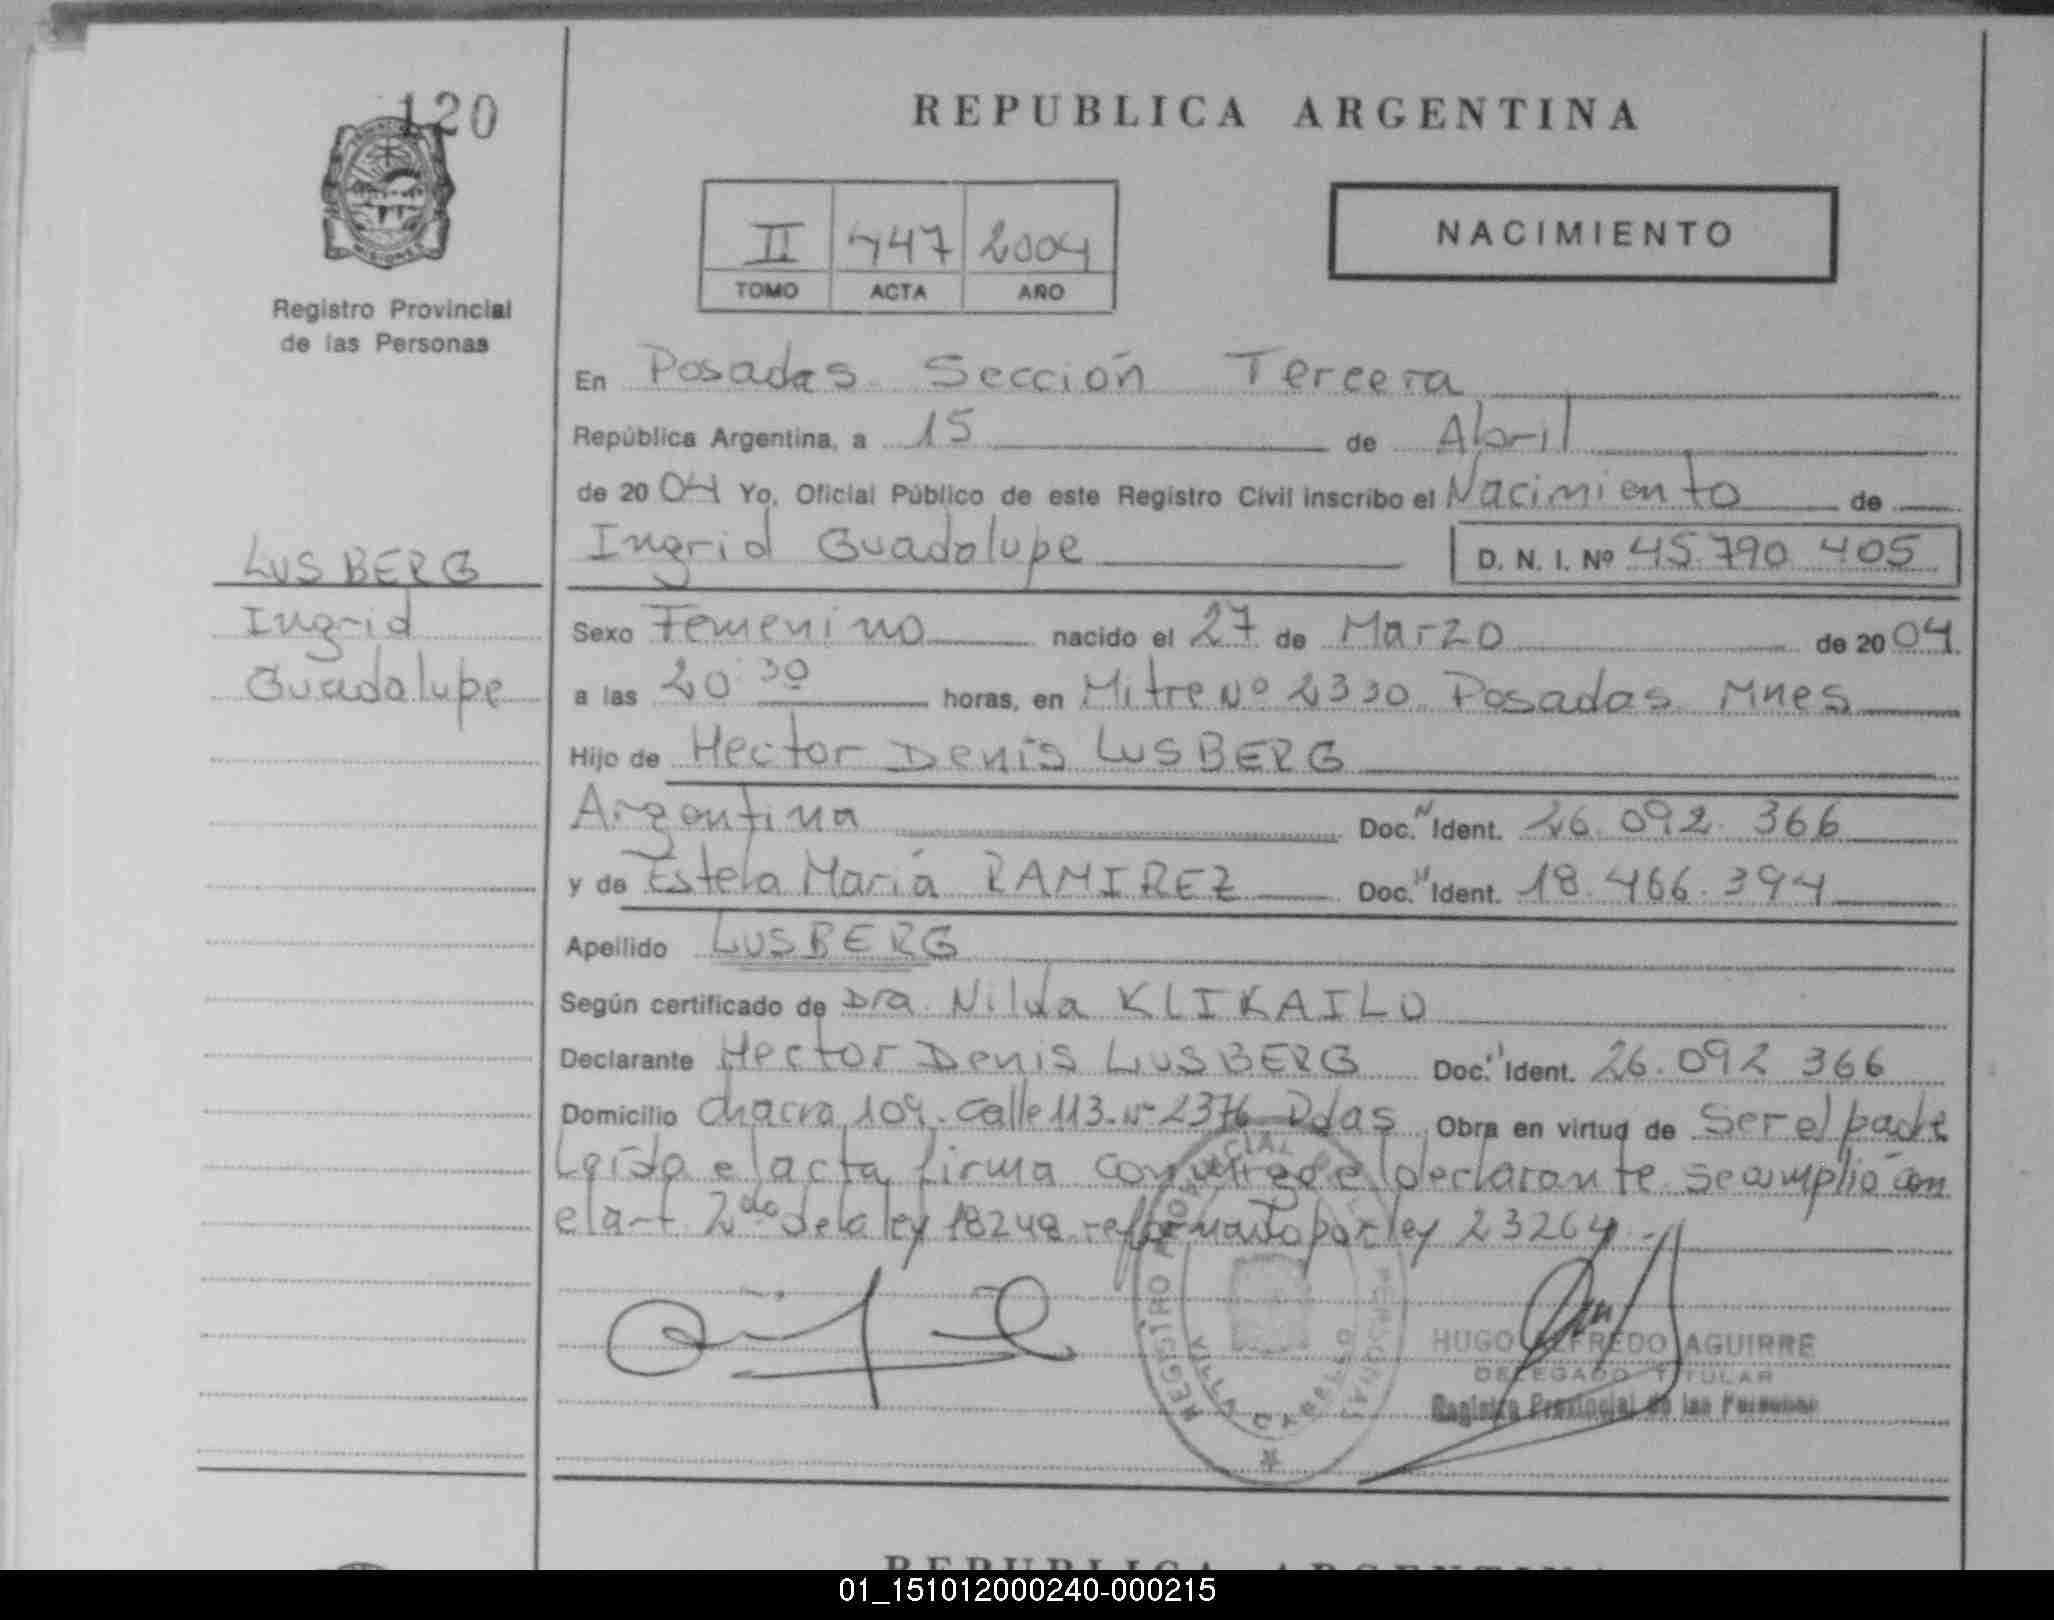 120
REPUBLICA ARGENTINA
II 447 2004
TOMO ACTA AÑO
NACIMIENTO
MISIONES
Registro Provincial
de las Personas
En Posadas Sección Tercera
República Argentina, a 15 de Abril
de 2004 Yo, Oficial Público de este Registro Civil inscribo el Nacimiento de
Ingrid Guadalupe D. N. I. Nº 45.790.405
LUSBERG
Ingrid
Guadalupe
Sexo Femenino nacido el 27 de Marzo de 2004
a las 20:30 horas, en Mitre Nº 2330 Posadas Mnes
Hijo de Hector Denis LUSBERG
Argentina Doc. N Ident. 26.092.366
y de Estela María RAMIREZ Doc. N Ident. 18.466.394
Apellido LUSBERG
Según certificado de Dra. Nilda KLIKAILO
Declarante Hector Denis LUSBERG Doc. N Ident. 26.092 366
Domicilio chacra 109. calle 113. Nº 2376 Pdas Obra en virtud de Ser el padre
Leída el acta firma conmigo el declarante se cumplió con
el art 2do de la ley 18248 reformado por ley 23264.-
REGISTRO PROVINCIAL PERSONAS
VILLA CABELLO
HUGO ALFREDO AGUIRRE
DELEGADO TITULAR
Registro Provincial de las Personas
REPUBLICA ARGENTINA
01_151012000240-000215